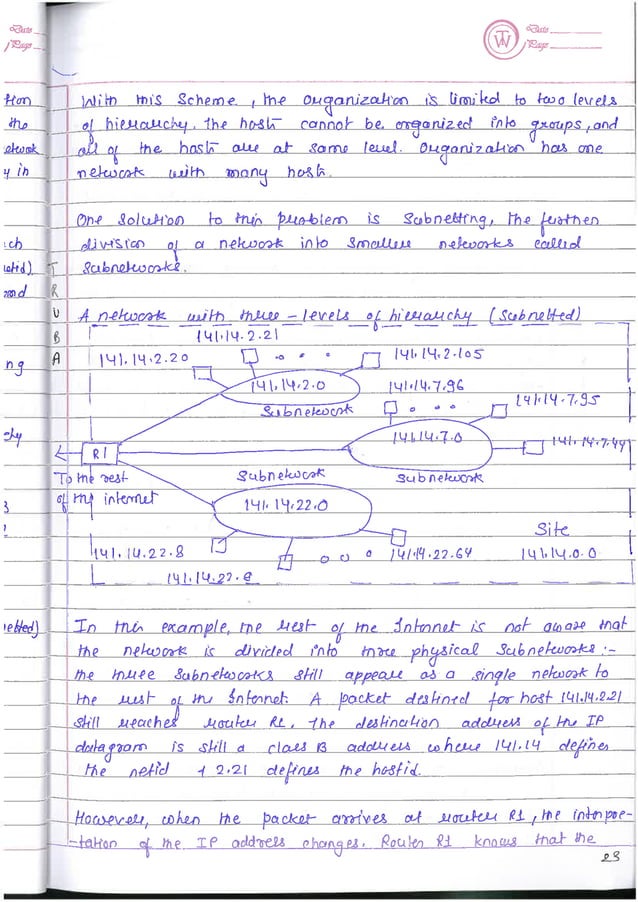 Date
Page
TW
Date
Page
tion
the
etwork
y in
With this scheme, the organization is limited to two levels
of hierarchy. The hosts cannot be organized into groups, and
all of the hosts are at same level. Organization has one
network with many hosts.
One solution to this problem is Subnetting, the further
division of a network into smaller networks called
Subnetworks.
TRUBA
A network with three-levels of hierarchy (Subnetted)
141.14.2.21
141.14.2.20
141.14.2.105
141.14.2.0
141.14.7.96
141.14.7.95
Subnetwork
141.14.7.0
141.14.7.44
R1
To the rest
of the internet
Subnetwork
Subnetwork
141.14.22.0
Site
141.14.0.0
141.14.22.8
141.14.22.64
141.14.22.9
netted)
In this example, the rest of the Internet is not aware that
the network is divided into three physical Subnetworks:-
the three Subnetworks still appear as a single network to
the rest of the Internet. A packet destined for host 141.14.2.21
still reaches router R1. The destination address of the IP
datagram is still a class B address where 141.14 defines
the netid & 2.21 defines the hostid.
However, when the packet arrives at router R1, the interpre-
-tation of the IP address changes. Router R1 knows that the
23